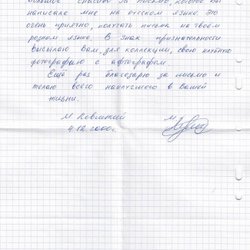 большое спасибо за письмо, которое Вы
написали мне на русском языке. Это
очень приятно, получать письма на твоём
родном языке. В знак признательности
высылаю Вам, для коллекции, свою клубную
фотографию с автографом.
Ещё раз благодарю за письмо и
желаю всего наилучшего в Вашей
жизни.